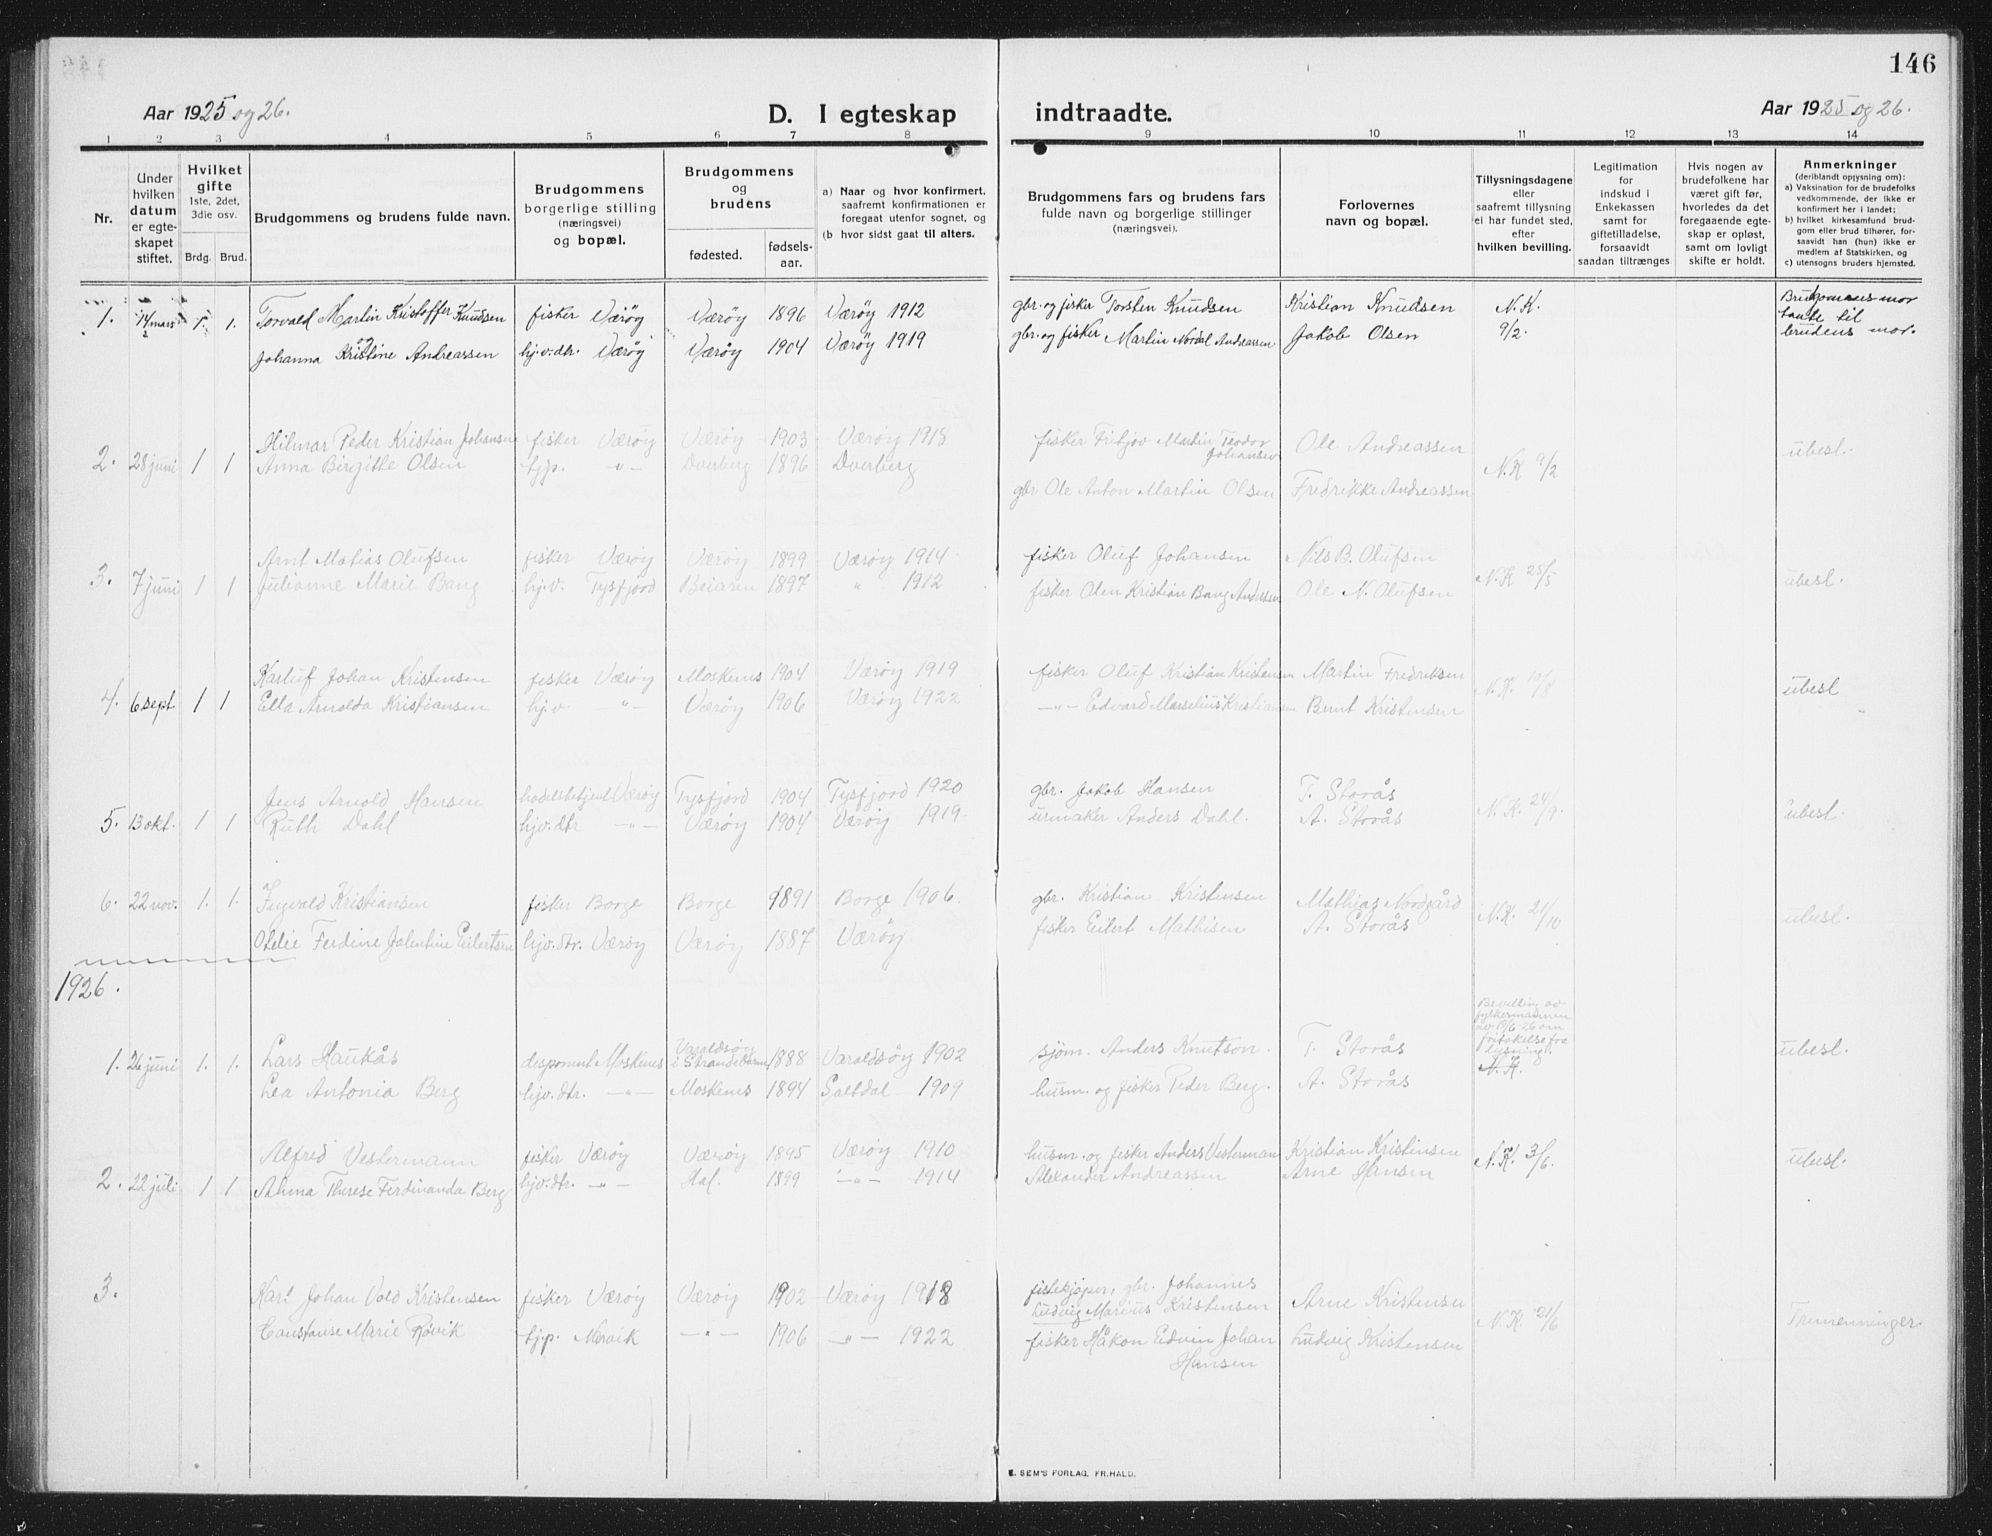 146
Aar 1925 og 26.
D. I egteskap indtraadte.
Aar 1925 og 26.
1 2 3 4 5 6 7 8 9 10 11 12 13 14
Nr.
Under hvilken datum er egte-skapet stiftet.
Hvilket gifte 1ste, 2det, 3die osv.
Brdg. Brud.
Brudgommens og brudens fulde navn.
Brudgommens borgerlige stilling (næringsvei) og bopæl.
Brudgommens og brudens
fødested. fødsels-aar.
a) Naar og hvor konfirmert, saafremt konfirmationen er foregaat utenfor sognet, og
(b hvor sidst gaat til alters.
Brudgommens fars og brudens fars fulde navn og borgerlige stillinger (næringsvei).
Forlovernes navn og bopæl.
Tillysningsdagene eller saafremt tillysning ei har fundet sted, efter hvilken bevilling.
Legitimation for indskud i Enkekassen samt for giftetilladelse, forsaavidt saadan tiltrænges
Hvis nogen av brudefolkene har været gift før, hvorledes da det foregaaende egte-skap er opløst, samt om lovligt skifte er holdt.
Anmerkninger
(deriblandt opjysning om):
a) Vaksination for de brudefolks vedkommende, der ikke er konfirmert her i landet;
b) hvilket kirkesamfund brud-gom eller brud tilhører, for-saavidt han (hun) ikke er medlem af Statskirken, og
c) utensogns bruders hjemsted.
1. 14 mars 1. 1. Torvald Martin Kristoffer Knudsen fisker Værøy Værøy 1896 Værøy 1912 gbr. og fisker Torsten Knudsen Kristian Knudsen N.K. 9/2. Brudgommens mor tante til brudens mor.
og
Johanna Kristine Andreassen hj.v. dtr. Værøy Værøy 1904 Værøy 1919 gbr. og fisker Martin Nordal Andreassen Jakob Olsen
2. 28 juni 1 1 Hilmar Peder Kristian Johansen fisker Værøy Værøy 1903 Værøy 1918 fisker Fritjov Martin Teodor Johansen Ole Andreassen N.K 9/2 ubesl.
Anna Birgitte Olsen tjp. -"- Dverberg 1896 Dverberg gbr Ole Anton Martin Olsen Fredrikke Andreassen
3. 7 juni 1 1 Arnt Matias Olufsen fisker Værøy Værøy 1899 Værøy 1914 fisker Oluf Johansen Nils B. Olufsen N.K 25/5 ubesl.
Julianne Marie Bang hj.v. Tysfjord Beiaren 1897 " 1912 fisker Olen Kristian Bang Andersen Ole N. Olufsen
4. 6 sept 1 1 Karluf Johan Kristensen fisker Værøy Moskenes 1904 Værøy 1919 fisker Oluf Kristian Kristensen Martin Fredriksen N.K. 10/8 ubesl
Etta Arnolda Kristiansen hj.v -"- Værøy 1906 Værøy 1922 -"- Edvard Marselius Kristiansen Bernt Kristensen
5. 13 okt. 1 1 Jens Arnold Hansen Værøy Tysfjord 1904 Tysfjord 1920 gbr. Jakob Hansen T. Storås N.K. 24/9. ubesl.
Ruth Dahl hjv. dtr -"- Værøy 1904 Værøy 1919. urmaker Anders Dahl. A. Storås
6. 22 nov. 1. 1. Ingvald Kristiansen fisker Borge Borge 1891 Borge 1906. gbr. Kristian Kristensen Mathias Nordgård N.K. 21/10 ubesl.
Otelie Ferdine Jalentine Eilertsen hjv. dtr. Værøy Værøy 1887 Værøy fisker Eilert Mathisen A. Storås
1926.
1. 26 juni 1. 1. Lars Haukås disponent Moskenes Varaldsøy i Strandebarm 1888 Varaldsøy 1902 sjøm. Anders Knutson. T. Storås Bevilling av fylkesmannen av 19/6 26 om fritakelse fra lysning. N.K. ubesl.
Lea Antonia Berg hjv. dtr. -"- Moskenes 1894 Saltdal 1909 husm. og fisker Peder Berg. A. Storås
2. 22 juli 1 1 Alfred Vestermann fisker Værøy Værøy 1895 Værøy 1910 husm. og fisker Anders Vesterman Kristian Kristensen N.K. 3/6. ubesl.
Therese Ferdinanda Berg hjv. dtr. -"- Hal. 1899 -"- 1914 Alexander Andreassen Arne Hansen
3. Karl Johan Vold Kristensen fisker Værøy Værøy 1902 Værøy 1918 fiskekjøper, gbr. Johannes Ludvig Marius Kristensen Arne Kristensen N.K. 21/6 Tremenninger.
Constanse Marie Røvik tj.p. Narvik -"- 1906 -"- 1922 fisker Håkon Edvin Johan Hansen Ludvig Kristensen
E. SEM'S FORLAG, FR.HALD.